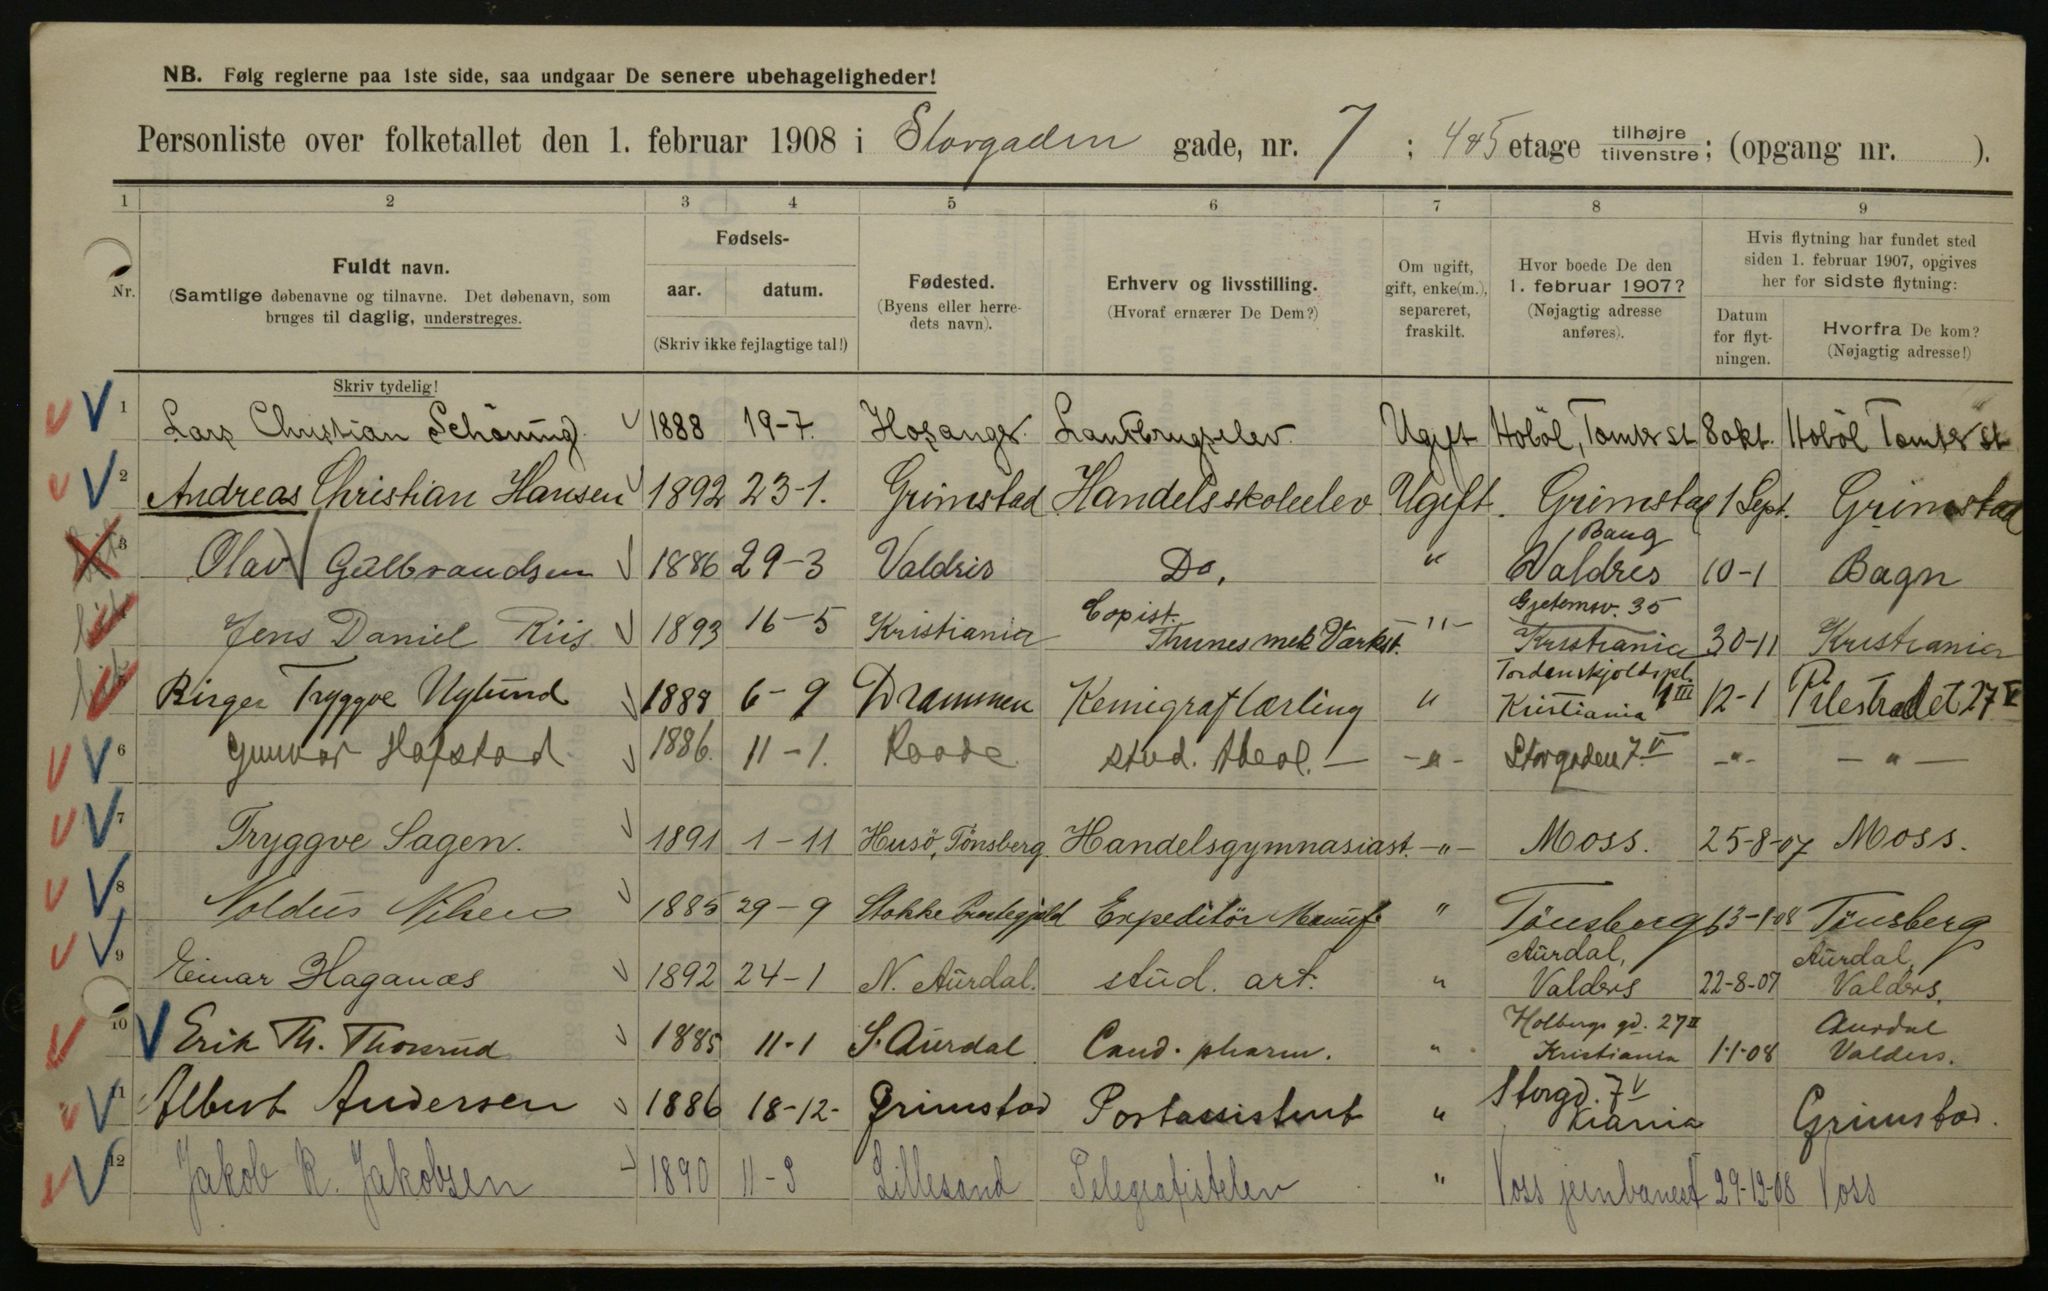 NB. Følg reglerne paa 1ste side, saa undgaar De senere ubehageligheder!
Personliste over folketallet den 1. februar 1908 i Storgaden gade, nr. 7 ; 4&5 etage tilhøjre tilvenstre; (opgang nr. ).
1 2 3 4 5 6 7 8 9
Nr.
Fuldt navn.
(Samtlige døbenavne og tilnavne. Det døbenavn, som
bruges til daglig, understreges.
Skriv tydelig!
Fødsels-
aar. datum.
(Skriv ikke fejlagtige tal!)
Fødested.
(Byens eller herre-
dets navn).
Erhverv og livsstilling.
(Hvoraf ernærer De Dem?)
Om ugift,
gift, enke(m.),
separeret,
fraskilt.
Hvor boede De den
1. februar 1907?
(Nøjagtig adresse
anføres).
Hvis flytning har fundet sted
siden 1. februar 1907, opgives
her for sidste flytning:
Datum
for flyt-
ningen.
Hvorfra De kom?
(Nøjagtig adresse!)
1 Lars Christian Schöning 1888 19-7. Hosanger. Lantbrugselev. Ugift Hoböl, Tomter st 8 okt. Hoböl Tomter st
2 Andreas Christian Hansen 1892 23-1. Grimstad Handelsskoleelev Ugift. Grimstad 1 Sept. Grimstad
3 Olav Gulbrandsen 1886 29-3 Valdris Do. " Bang Valdres 10-1 Bagn
Jens Daniel Riis 1893 16-5 Kristiania Copist. Thunes mek Værkst. " Gjetemsv. 35 Kristiania 30-11 Kristiania
Birger Tryggve Nylund 1888 6-9 Drammen Kemigraf lærling " Tordenskjoldspl. 1 III Kristiania 12-1 Pilestrædet 27 V
6 Gunnar Hafstad 1886. 11-1. Raade stud. theol. — -"- Storgaden 7 V -"- — " —
7 Tryggve Sagen. 1891 1-11 Husö, Tönsberg Handelsgymnasiast. -"- Moss. 25-8-07 Moss.
8 Noldus Nilsen 1885 29-9 Stokke Prestegjeld Expeditör Manuf. " Tönsberg 13-1-08 Tönsberg
9 Einar Haganæs 1892 24-1 N. Aurdal. stud. art. " Aurdal, Valders 22-8-07 Aurdal, Valders.
10 Erik Th. Thorsrud 1885 11-1 S. Aurdal Cand. pharm. " Holbergs gd. 27 II Kristiania 1-1-08 Aurdal Valders.
11 Albert Andersen 1886 18-12- Grimstad Postassistent " Storgd. 7 V Kiania Grimstad.
12 Jakob R. Jakobsen 1890 11-9 Lillesand Telegrafistelev " Voss jernbanest 29-12-08 Voss